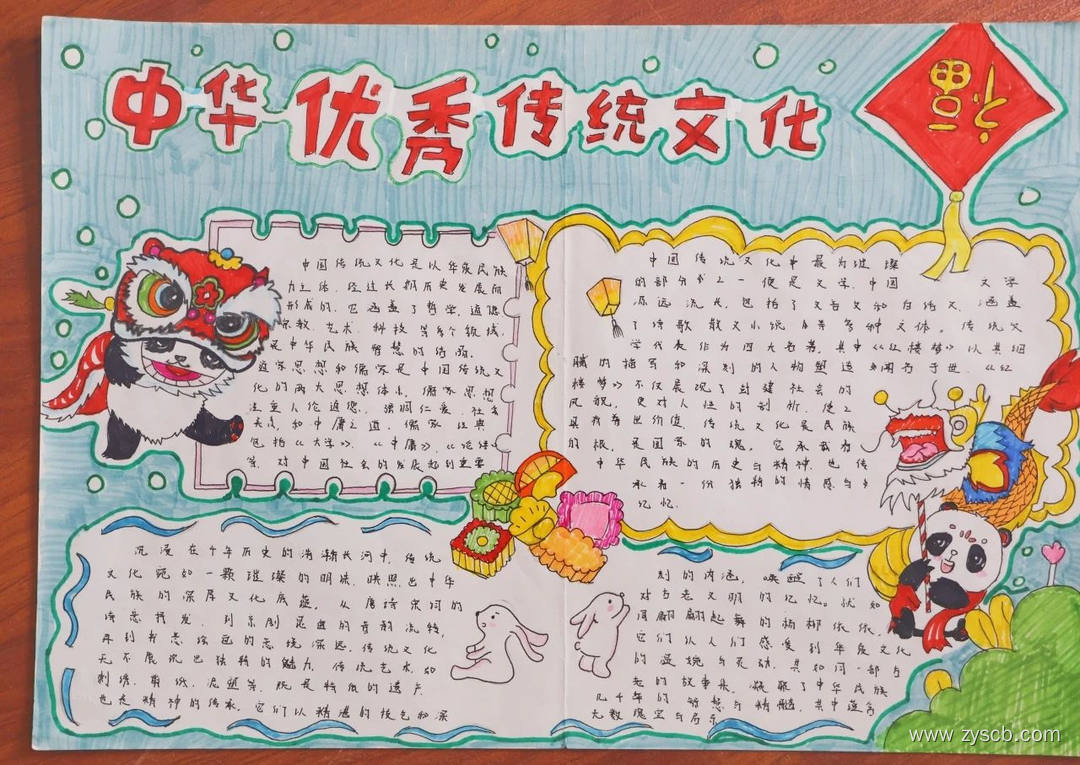 中华优秀传统文化
福
中国传统文化是以华夏民族
为主体,经过长期历史发展而
形成的,它涵盖了哲学,道德
宗教,艺术,科技等多个领域
是中华民族智慧的结晶,
道家思想和儒家是中国传统文
化的两大思想体系,儒家思想
注重人伦道德,强调仁爱,社会
和中庸之道,儒家经典
包括《大学》,《中庸》,《论语》
等,对中国社会的发展起到重要
中国传统文化中最为璀璨
的部分书之一便是文学,中国文学
源远流长,包括了文言文和白话文,涵盖
了诗歌散文小说等多种文体。传统文
学代表作为四大名著,其中《红楼梦》以其细
腻的描写和深刻的人物塑造闻名于世,《红
楼梦》不仅展现了封建社会的
风貌,更对人性的剖析,使之
具有普世价值,传统文化是民族
的根,是国家的魂,它承载着
中华民族的历史与精神也传
承着一份独特的情感与
记忆.
沉浸在千年历史的浩瀚长河中,传统
文化宛如一颗璀璨的明珠,映照出中华
民族的深厚文化底蕴,从唐诗宋词的
诗意抒发,到京剧昆曲的音韵流转,
再到书画绘色的意境深远,传统文化
无不展现出独特的魅力,传统艺术,如
刺绣,剪纸,泥塑等,既是物质的遗产
也是精神的传承,它们以精湛的技艺和深
刻的内涵,唤醒了人们
对古老文明的记忆。犹如
河翩翩起舞的杨柳依依,
它们从人们感受到华夏文化
的温婉与灵动,其如同一部古
老的故事集,凝聚了中华民族
几千年的智慧与精髓,其中蕴含
无数瑰宝与启示
www.zyscb.com